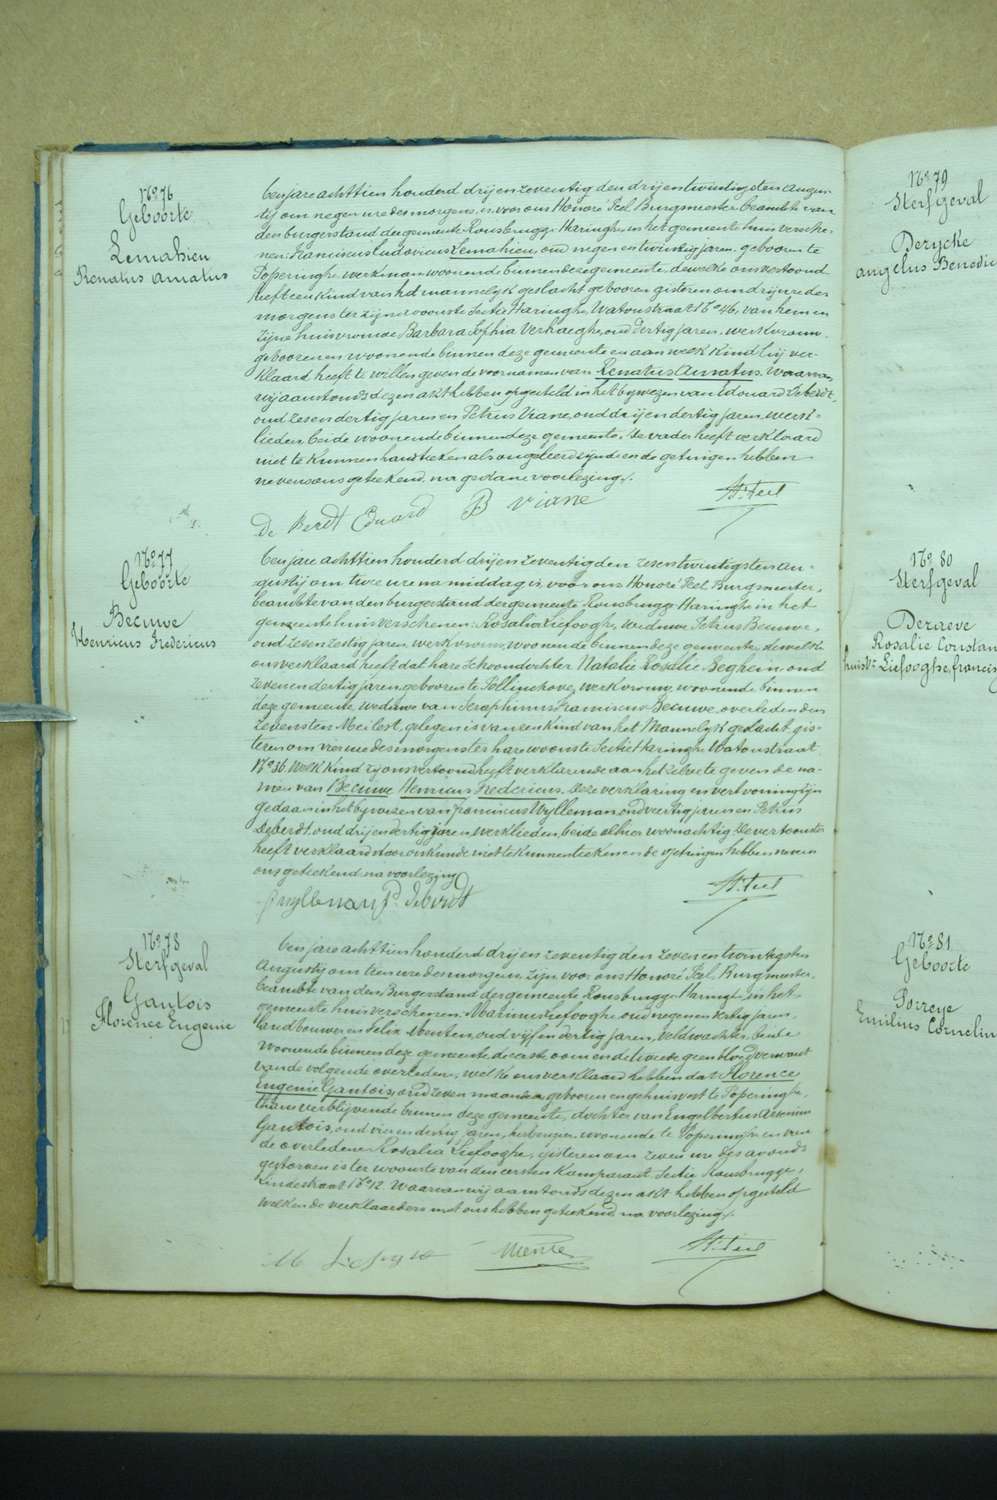 No 76
Geboorte
Lemahieu
Renatus Amatus
Ten jare achttien honderd drij en zeventig den drij en twintigsten augus-
tij om negen ure des morgens, is voor ons Honoré Feel Burgmeester beambte van
den burgerstand der gemeente Rousbrugge-Haringhe in het gemeente huis versche-
nen: Franciscus Ludovicus Lemahieu, oud negen en twintig jaren, geboren te
Poperinghe, werkman woonende binnen deze gemeente, dewelke ons vertoond
heeft een kind van het mannelijk geslacht, geboren gisteren om drij ure des
morgens ter zijner woonste Sectie Haringhe, Watoustraat No 46, van hem en
zijne huisvrouwe Barbara Sophia Verhaeghe, oud dertig jaren, werkvrouw
geboren en woonende binnen deze gemeente en aan welk kind hij ver-
klaard heeft te willen geven de voornamen van Renatus Amatus. Waarvan
wij aanstonds dezen akt hebben opgesteld in het bijwezen van Edouard Deberdt,
oud zes en dertig jaren en Petrus Viane, oud drij en dertig jaren, werk-
lieden beide woonende binnen deze gemeente. De vader heeft verklaard
niet te kunnen handteeken als ongeleerd zijnde en de getuigen hebben
nevens ons geteekend, na gedane voorlezing.
De Berdt Eduard B Viane H. Feel
No 77
Geboorte
Becuwe
Henricus Fredericus
Ten jare achttien honderd drij en zeventig den zes en twintigsten au-
gustij om twee ure na middag is voor ons Honoré Feel Burgmeester,
beambte van den burgerstand der gemeente Rousbrugge-Haringhe in het
gemeente huis verschenen: Rosalia Liefooghe, weduwe Petrus Becuwe,
oud zes en zestig jaren, werkvrouw, woonende binnen deze gemeente, dewelke
ons verklaard heeft dat hare schoondochter Natalie Rosalie Beghein, oud
zeven en dertig jaren, geboren te Pollinchove, werkvrouw, woonende binnen
deze gemeente, weduwe van Seraphinus Franciscus Becuwe, overleden den
zevensten Mei lest, gelegen is van een kind van het Mannelijk geslacht, gis-
teren om vier ure des morgens ter hare woonste Sectie Haringhe Watoustraat
No 56. Welk kind zij ons vertoond heeft verklarende aan het zelve te geven de na-
men van Becuwe Henricus Fredericus. Deze verklaring en vertooning zijn
gedaan in het bijwezen van Franciscus Wylleman, oud veertig jaren en Petrus
Deberdt, oud drij en dertig jaren, werklieden, beide alhier woonachtig. De vertoonster
heeft verklaard door onkunde niet te kunnen teekenen en de getuigen hebben neven
ons geteekend na voorlezing.
F wylleman P. deberdt H. Feel
No 78
Sterfgeval
Gantois
Florence Eugenie
Ten jare achttien honderd drij en zeventig den zeven en twintigsten
Augustij om tien ure des morgens, zijn voor ons Honoré Feel Burgmeester,
beambte van den Burgerstand der gemeente Rousbrugge-Haringhe in het
gemeente huis verschenen: Marinus Liefooghe, oud negen en dertig jaren,
landbouwer en Felix Wenten, oud vijf en dertig jaren, veldwachter, beide
woonende binnen deze gemeente de eerste oom en de tweede geen bloedverwant
van de volgende overledene, welke ons verklaard hebben dat Florence
Eugenie Gantois, oud zeven maanden, geboren en gehuisvest te Poperinghe,
thans verblijvende binnen deze gemeente, dochter van Engelbertus
Gantois, oud vier en dertig jaren, herbergier, woonende te Poperinghe en van
de overledene Rosalia Liefooghe, gisteren om zeven ure des avonds
gestorven is ter woonste van den eersten komparant Sectie Rousbrugge,
Lindestraat No 12. Waarvan wij aanstonds dezen akt hebben opgesteld
welken de verklaarders met ons hebben geteekend na voorlezing.
M Liefooghe H. Feel
No 79
Sterfgeval
Derycke
Angelus Benedic
No 80
Sterfgeval
Deraeve
Rosalie Constan
huisv. Liefooghe, francis
No 81
Geboorte
Porreye
Emilius Cornelius